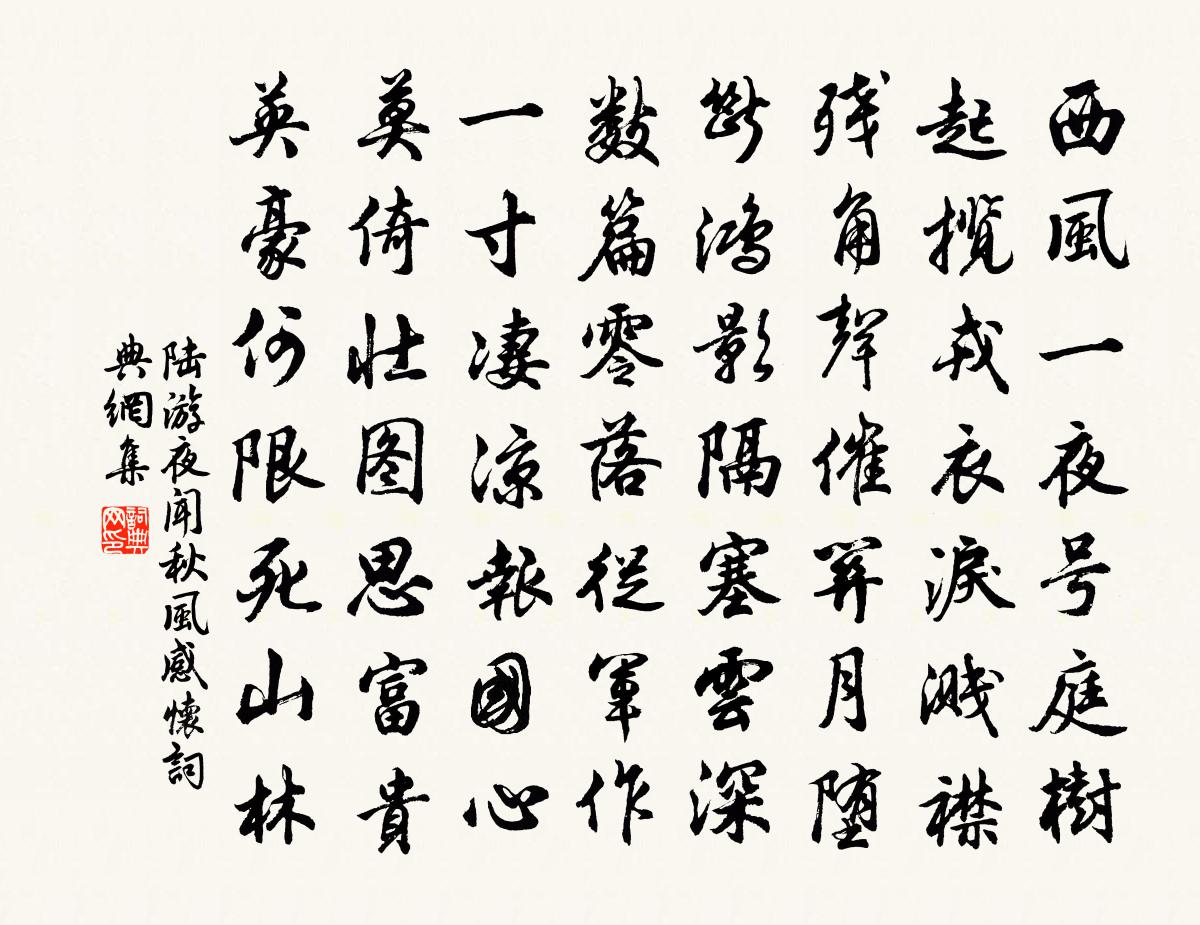 西風一夜号庭樹
起攬戎衣淚濺襟
残角聲催關月墮
斷鴻影隔塞雲深
数篇零落從軍作
一寸凄涼報國心
莫倚壯图思富貴
英豪何限死山林
陆游夜闻秋風感懷詞
典網集
詞典网印